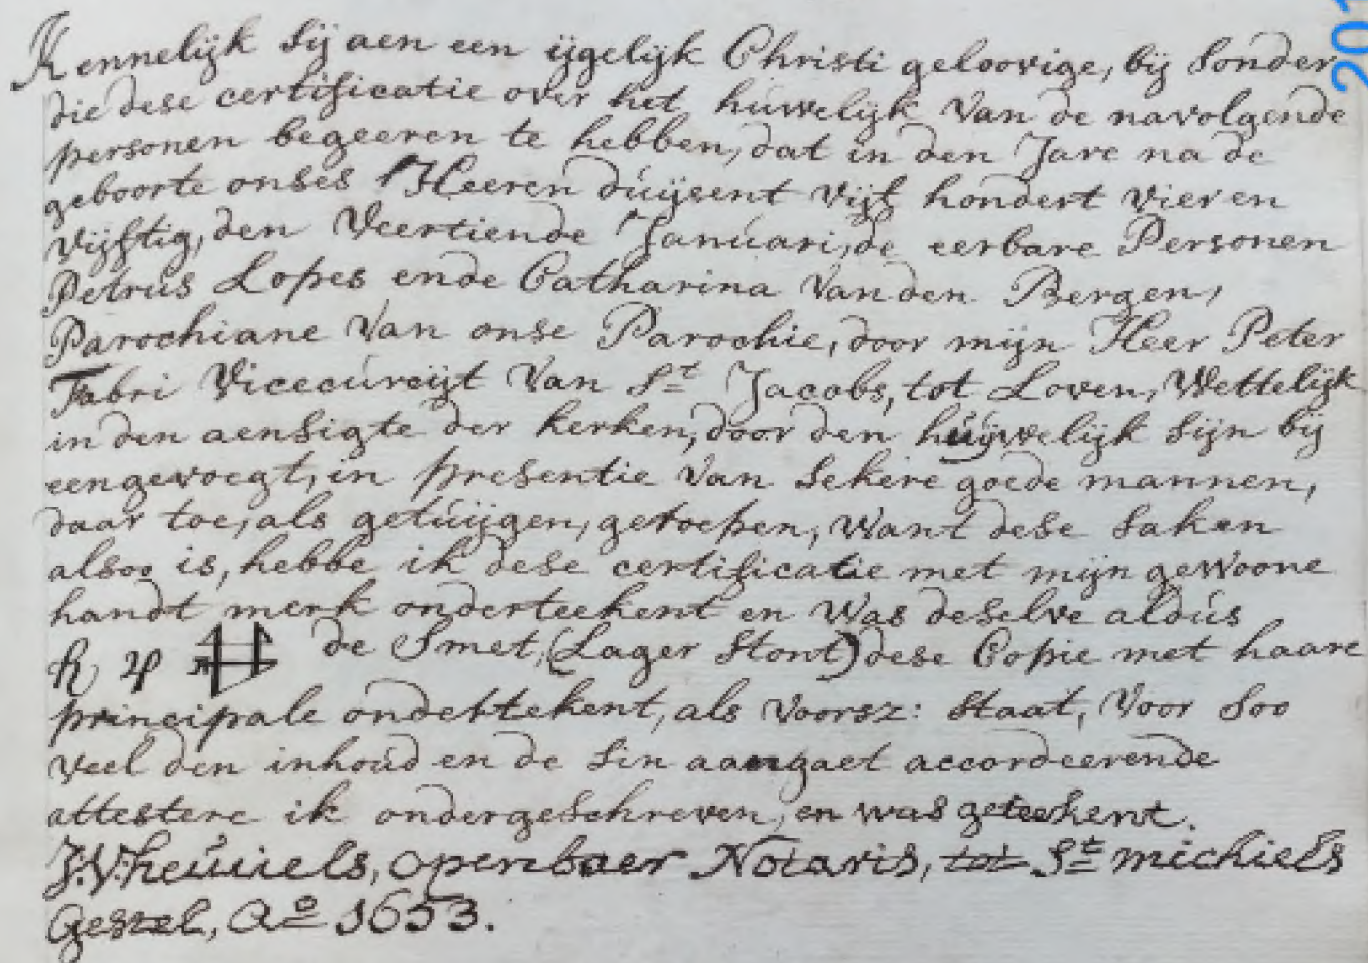 Kennelijk sij aen een ijgelijk Christi geloovige, bij sonder
die dese certificatie over het húwelijk Van de navolgende
personen begeeren te hebben, dat in den Jare na de
geboorte onses Heeren dúijsent vijf hondert vier en
vijftig, den Veertiende Janúari, de eerbare Personen
Petrús Lopes ende Catharina Vanden Bergen,
Parochiane Van onse Parochie, door mijn Heer Peter
Fabri Vicecúreijt Van St Jacobs, tot Loven, Wettelijk
in den aensigte der kerken, door den húijwelijk sijn bij
een gevoegt, in presentie Van sekere goede mannen,
daar toe, als getúijgen, geroepen, Want dese saken
alsoo is, hebbe ik dese certificatie met mijn gewoone
handt merk onderteekent en Was deselve aldús
de Smet, (Lager stont) dese Copie met haare
principale ondertekent, als Voorsz: staat, Voor soo
veel den inhoud en de sin aangaet accordeerende
attestere ik ondergeschreven, en was geteekent.
J.V.heúúels, openbaer Notaris, tot St michiels
Gestel, Ao 1653.
201